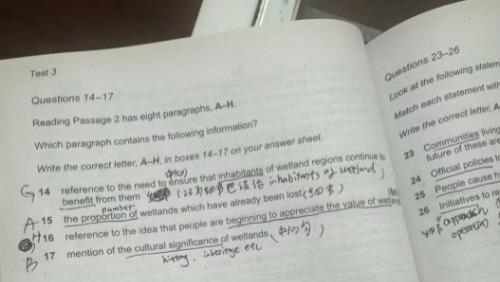 Test 3
Questions 14–17
Reading Passage 2 has eight paragraphs, A–H.
Which paragraph contains the following information?
Write the correct letter, A–H, in boxes 14–17 on your answer sheet.
G 14 reference to the need to ensure that inhabitants of wetland regions continue to
benefit from them
inhabitants of wetland
number
A 15 the proportion of wetlands which have already been lost
H 16 reference to the idea that people are beginning to appreciate the value of
B 17 mention of the cultural significance of wetlands
history. etc
Questions 23–26
Look at the following
Match each statement
Write the correct letter,
23 Communities
future of these
24 Official policies
25 People cause
26 Initiatives to
approach